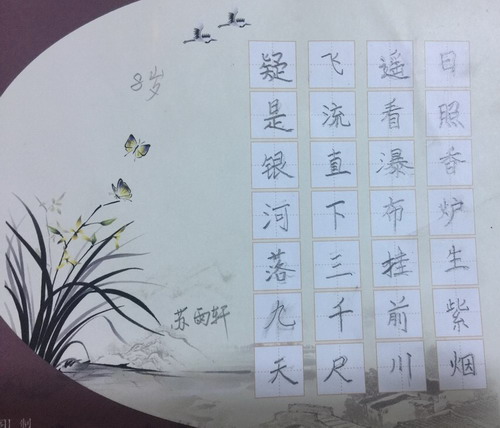 日照香炉生紫烟
遥看瀑布挂前川
飞流直下三千尺
疑是银河落九天
8岁
苏雨轩
制